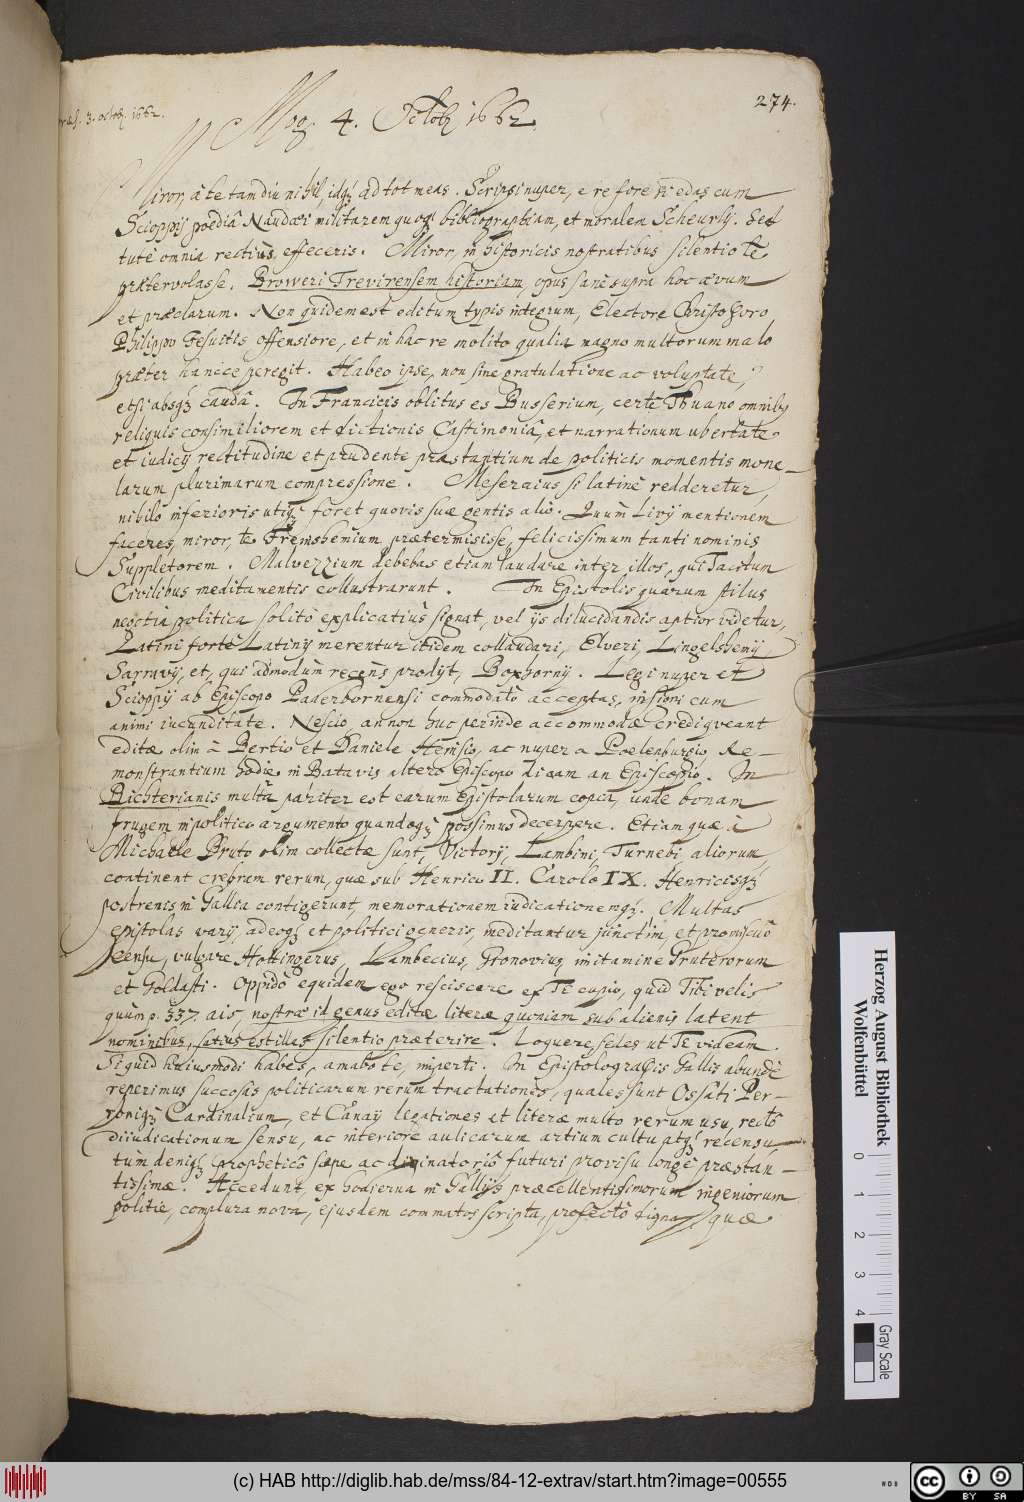 274.
3. octob. 1662.
Mog. 4. Octob. 1662.
Miror, à te tamdiu nihil, idq; ad tot meas. Scripsi nuper, e re fore si edas cum
Scioppij pædiâ Naudæi militarem quoq; bibliographiam, et moralem Scheurly. Sed
tute omnia rectius effeceris. Miror, in historicis nostratibus silentio te
prætervolasse, Broweri Trevirensem historiam, opus sane supra hoc ævum
et præclarum. Non quidem est editum typis integrum, Electore Christoforo
Philippo Jesuitis offensiore, et in hac re molito qualia magno multorum malo
præter hancce peregit. Habeo ipse, non sine gratulatione ac voluptate,
etsi absq; caudâ. In Francicis oblitus es Busserium, certe Thuano omnibq
reliquis consimiliorem et dictionis castimoniâ, et narrationum ubertate
et iudicij rectitudine et prudente præstantium de politicis momentis mone-
larum plurimarum compressione. Meseraius si latinè redderetur,
nihilo inferioris utiq; foret quovis suæ gentis alio. Quùm Livij mentionem
faceres, miror, te Freinshemium prætermisisse, felicissimum tanti nominis
Suppletorem. Malvezzium debebas etiam laudare inter illos, qui Tacitum
Civilibus meditamentis collustrarunt. In Epistolis quarum stilus
negotia politica solito explicatius signat, vel ijs dilucidandis aptior videtur,
Latini forte Latinij merentur itidem collaudari, Elveri, Lingelshemij,
Sarravij, et, qui admodùm recens prodijt, Boxhornij. Legi nuper et
Scioppij ab Episcopo Paderbornensi commodatò acceptas, insigni cum
animi iucunditate. Nescio, annon huc perinde accommodæ credi queant
editæ olim à Bertio et Daniele Heinsio, ac nuper a Poelenburgio, Re-
monstrantium hodie in Batavis altero Episcopo dicam an Episcopio. In
Richterianis multa pariter est earum Epistolarum copia, unde bonam
frugem in politico argumento quandoq; possimus decerpere. Etiam quæ à
Michaele Bruto olim collectæ sunt, Victorij, Lambini, Turnebi aliorum,
continent crebram rerum, quæ sub Henrico II. Carolo IX. Henricisq;
postremis in Gallia contigerunt, memorationem iudicationemq;. Multas
epistolas varij, adeoq; et politici generis, meditantur junctim, et promiscuô
censu, vulgare Hottingerus, Lambecius, Gronovius imitamine Gruterorum
et Goldasti. Oppidò equidem ego resciscere ex Te cupio, quid Tibi velis
quùm p. 337. ais, nostræ id genus editæ literæ quoniam sub alienis latent
nominibus, satius est illas silentio præterire. Loquere, sodes ut Te videam.
Si quid huiusmodi habes, amabo te, imperti. In Epistolografis Gallis abundè
reperimus succosas politicarum rerum tractationes, quales sunt Ossati Per-
roniq; Cardinalium, et Canaÿ legationes et literæ multo rerum usu, rectô
diiudicationum sensu, ac interiore aulicarum artium cultu atq; recensu,
tùm deniq; propheticô sæpe ac divinatoriô futuri provisu longè præstan-
tissimæ. Accedunt, ex hodierna in Gallijs præcellentissimorum ingeniorum
politie, complura nova, ejusdem commatis scripta, profectò digna, quæ
Herzog August Bibliothek
Wolfenbüttel
0 1 2 3 4
Gray Scale
(c) HAB http://diglib.hab.de/mss/84-12-extrav/start.htm?image=00555
cc BY SA